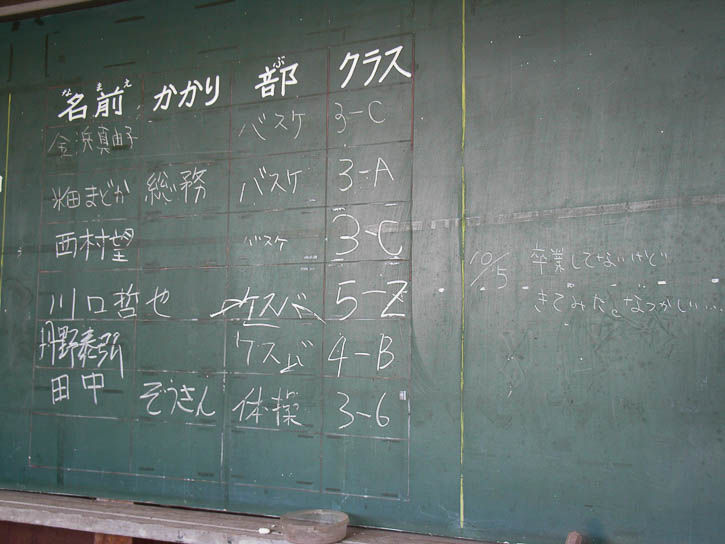 なまえ ぶ
名前 かかり 部 クラス
金浜真由子 バスケ 3-C
畑田まどか 総務 バスケ 3-A
西村望 バスケ 3-C
川口哲也 ケスバ 5-Z
丹野泰弘 ケスバ 4-B
田中 ぞうさん 体操 3-6
10/5 卒業してないけど
きてみた。なつかしい...